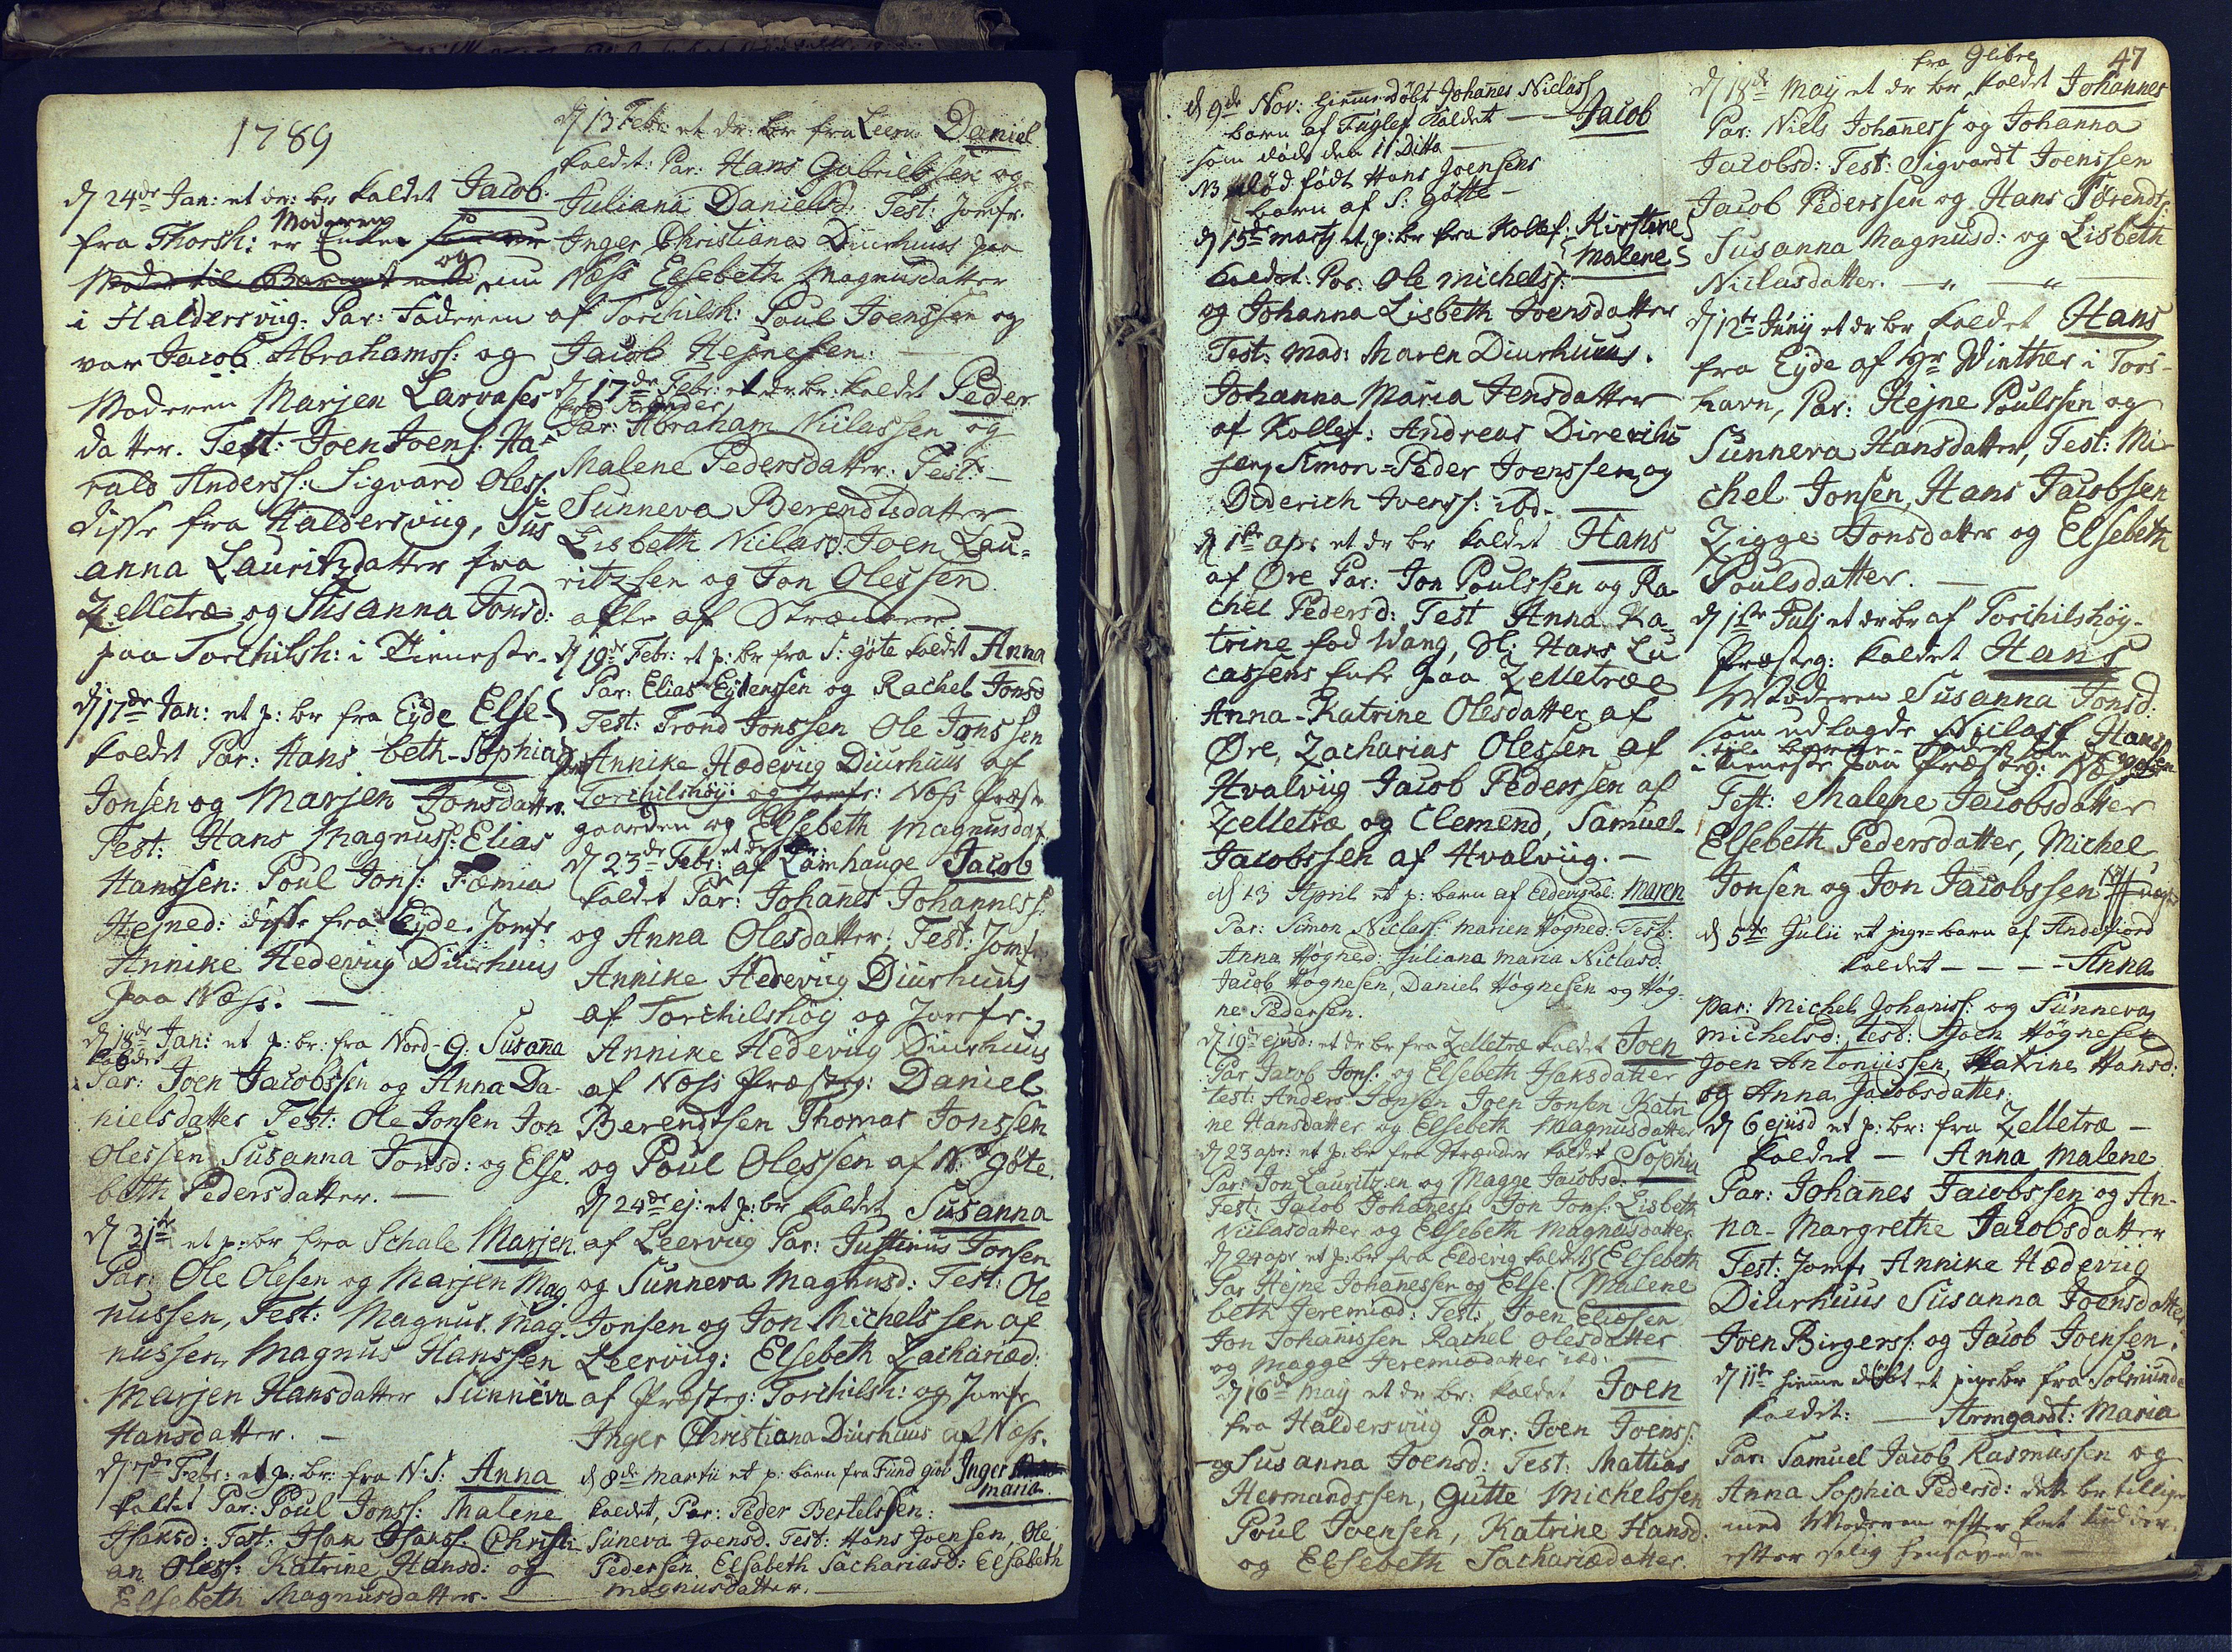 1789
d 24de Jan: et dr: br kaldet Jacob.
fra Thorsh: er Enken
Moderen
og
nu
i Haldersviig. Par: Faderen
var Jacob Abrahamss: og
Moderen Marjen Larvases
datter. Test: Joen Joens: Ha-
rald Anderss: Sigvard Oless:
disse fra Haldersviig, Sus
anna Lauritzdatter fra
Zelletræ og Susanna Jonsd:
paa Torchilsh: i Tieneste.
d 17de Jan: et p: br fra Eyde Else-
kaldet Par: Hans beth-Sophia
Jonsen og Marjen Jonsdatter.
Test: Hans Magnuss: Elias
Hanssen: Poul Jons: Fæmia
Hejned: disse fra Eyde. Jomfr
Annike Hedeviig Diurhuus
paa Næss. —
d 18de Jan: et p: br: fra Nord-G: Susana
kaldet
Par: Joen Jacobssen og Anna Da-
nielsdatter Test: Ole Jonsen Jon
Olessen Susanna Jonsd: og Else.
beth Pedersdatter. —
d 31te et p: br fra Schale Marjen.
Par: Ole Olesen og Marjen Mag
nussen, Test: Magnus Mag-
nussen, Magnus Hanssen
Marjen Hansdatter Sunneva
Hansdatter. —
d 7de Febr: et p: br: fra N: S: Anna
kaldet Par: Poul Jonss: Malene
Isaksd: Test: Isak Isakss: Christi-
an Oless: Katrine Hansd: og
Elsebeth Magnusdatter. —
d 13 Febr et dr: br fra Leern Daniel
kaldet: Par: Hans Gabrielssen og
Juliana Danielsd: Test: Jomfr.
Inger Christiana Diurhuus paa
Næss Elsebeth Magnusdatter
af Torchilsh: Poul Joenssen og
Jacob Hejnesen. —
d 17de Febr: et dr br: kaldet Peder
Par: Abraham Niclassen og
Malene Pedersdatter. Test: —
Sunneva Berendtsdatter
Lisbeth Niclasd: Joen Lau-
ritzsen og Jon Olessen
alle af Strænder
d 19de Febr: et p: br fra S: gøte kaldet Anna
Par: Elias Eydenssen og Rachel Jonsd
Test: Trond Jonssen Ole Jonssen
Annike Hædeviig Diurhuus af
Torchilshøj: og Jomfr: Næss Præste
gaarden og Elsebeth Magnusdat
et dr br:
d 23de Febr: af Lamhauge Jacob
kaldet Par: Johanes Johanness:
og Anna Olesdatter, Test: Jomf
Annike Hedeviig Diurhuus
af Torchilshøj og Jomfr.
Annike Hedeviig Diurhuus
af Næss Præsteg: Daniel
Berendtsen Thomas Jonssen
og Poul Olessen af N: Gøte.
d 24de ej: et p: br kaldet Susanna
af Leerviig Par: Justinus Jonsen
og Sunneva Magnusd: Test: Ole
Jonsen og Jon Michelssen af
Leerviig: Elsebeth Zachariæd:
af Præsteg: Torchilsh: og Jomfr
Inger Christiana Diurhuus af Næss.
d 8de Martii et p: barn fra Fund Inger
maria.
kaldet, Par: Peder Bertelssen:
Suneva Joensd. Test: Hans Joensen, Ole
Pedersen Elsebeth Sachariasd: Elsabeth
magnusdatter. —
d 9de Nov: hiemmedøbt Johanes Niclass
barn af Fuglef kaldet — Jacob
som døde den 11 Ditto —
NB død født Hans Joensens
barn af S: Gøtte —
d 15de martj et p: br fra Kollef: Kirstine
Malene
kaldet. Par. Ole Michelss:
og Johanna Lisbeth Joensdatter
Test: Mad: Maren Diurhuus.
Johanna Maria Jensdatter
af Kollef: Andreas
Simon-Peder Joenssen og
Diderich Ivenss: ibd. —
d 1ste apr et dr br kaldet Hans
af Øre Par: Jon Poulssen og Ra-
chel Pedersd: Test Anna Ka-
trine fød Wang, Sl: Hans Lu
cassens Enke paa Zelletræe
Anna-Katrine Olesdatter af
Øre, Zacharias Olessen af
Hvalviig Jacob Pederssen af
Zelletræ og Clemend, Samuel-
Jacobssen af Hvalviig. —
d 13 April et p: barn af Eldevig kal: Maren
Par: Simon Niclass: Marien Høgned: Test:
Anna Høgned: Juliana Maria Niclasd:
Jacob Høgnesen, Daniel Høgnesen og Høg-
ne Pedersen.
d 19de ejusd: et dr br fra Zelletræ kaldet Joen
Par Jacob Jons: og Elsebeth Isaksdatter
test: Anders Jonsen Joen Jonsen Katri
ne Hansdatter og Elsebeth Magnusdatter
d 23 apr: et p: br fra Strænder kaldet Sophia
Par: Jon Lauritzen og Magge Jacobsd:
Test: Jacob Johaness: Jon Jons: Lisbeth
Niclasdatter og Elsebeth Magnusdatter
d 24 apr et p: br fra Eldevig kaldet Elsebeth
Par Hejne Johanessen og Else Malene
beth Jeremiæd: Test: Joen Eliasen
Jon Johanissen Rachel Olesdatter
og Magge Jeremiædatter ibd. —
d 16de may et dr br: kaldet Joen
fra Haldersviig Par: Joen Joens:
og Susanna Joensd: Test: Mattias
Hermandssen, Gutte Michelssen
Poul Joensen, Katrine Hansd.
og Elsebeth Sachariædatter.
47
fra Glibre
d 18de May et dr br kaldet Johannes
Par: Niels Johaness og Johanna
Jacobsd: Test: Sigvardt Joenssen
Jacob Pederssen og Hans Børendts:
Susanna Magnusd: og Lisbeth
Niclasdatter. — " — "
d 12te Junij et dr br kaldet Hans
fra Eyde af Hr Winther i Tors-
havn, Par: Hejne Poulssen og
Sunneva Hansdatter, Test: Mi-
chel Jonsen, Hans Jacobsen
Zigge Jonsdatter og Elsebeth
Poulsdatter. —
d 1ste Julj et dr br af Torchilshøy-
Præsteg: kaldet Hans
Moderen Susanna Jonsd:
som udlagde Niclass Hanss
i tieneste paa Præsteg:
Test: Malene Jacobsdatter
Elsebeth Pedersdatter, Michel
Jonsen og Jon Jacobssen
d 5te Julii et pige-barn af Andefiord
kaldet — — — Anna
par: Michel Johaniss: og Sunneva
michelsd: test: Joen Høgnesen
Joen Antoniissen, Katrine Hansd:
og Anna Jacobsdatter.
d 6 ejusd et p: br: fra Zelletræ —
kaldet — Anna Malene
Par: Johanes Jacobssen og An-
na-Margrethe Jacobsdatter
Test: Jomfr Annike Hædeviig
Diurhuus Susanna Joensdatter
Joen Birgerss: og Jacob Joensen.
d 11te hiemme døbt et pigebr fra Solmunde
kaldet: — Armgardt: Maria
Par: Samuel Jacob Rasmussen og
Anna Sophia Pedersd: dette br tillige
med Moderen efter kort tid der-
efter salig hensovede